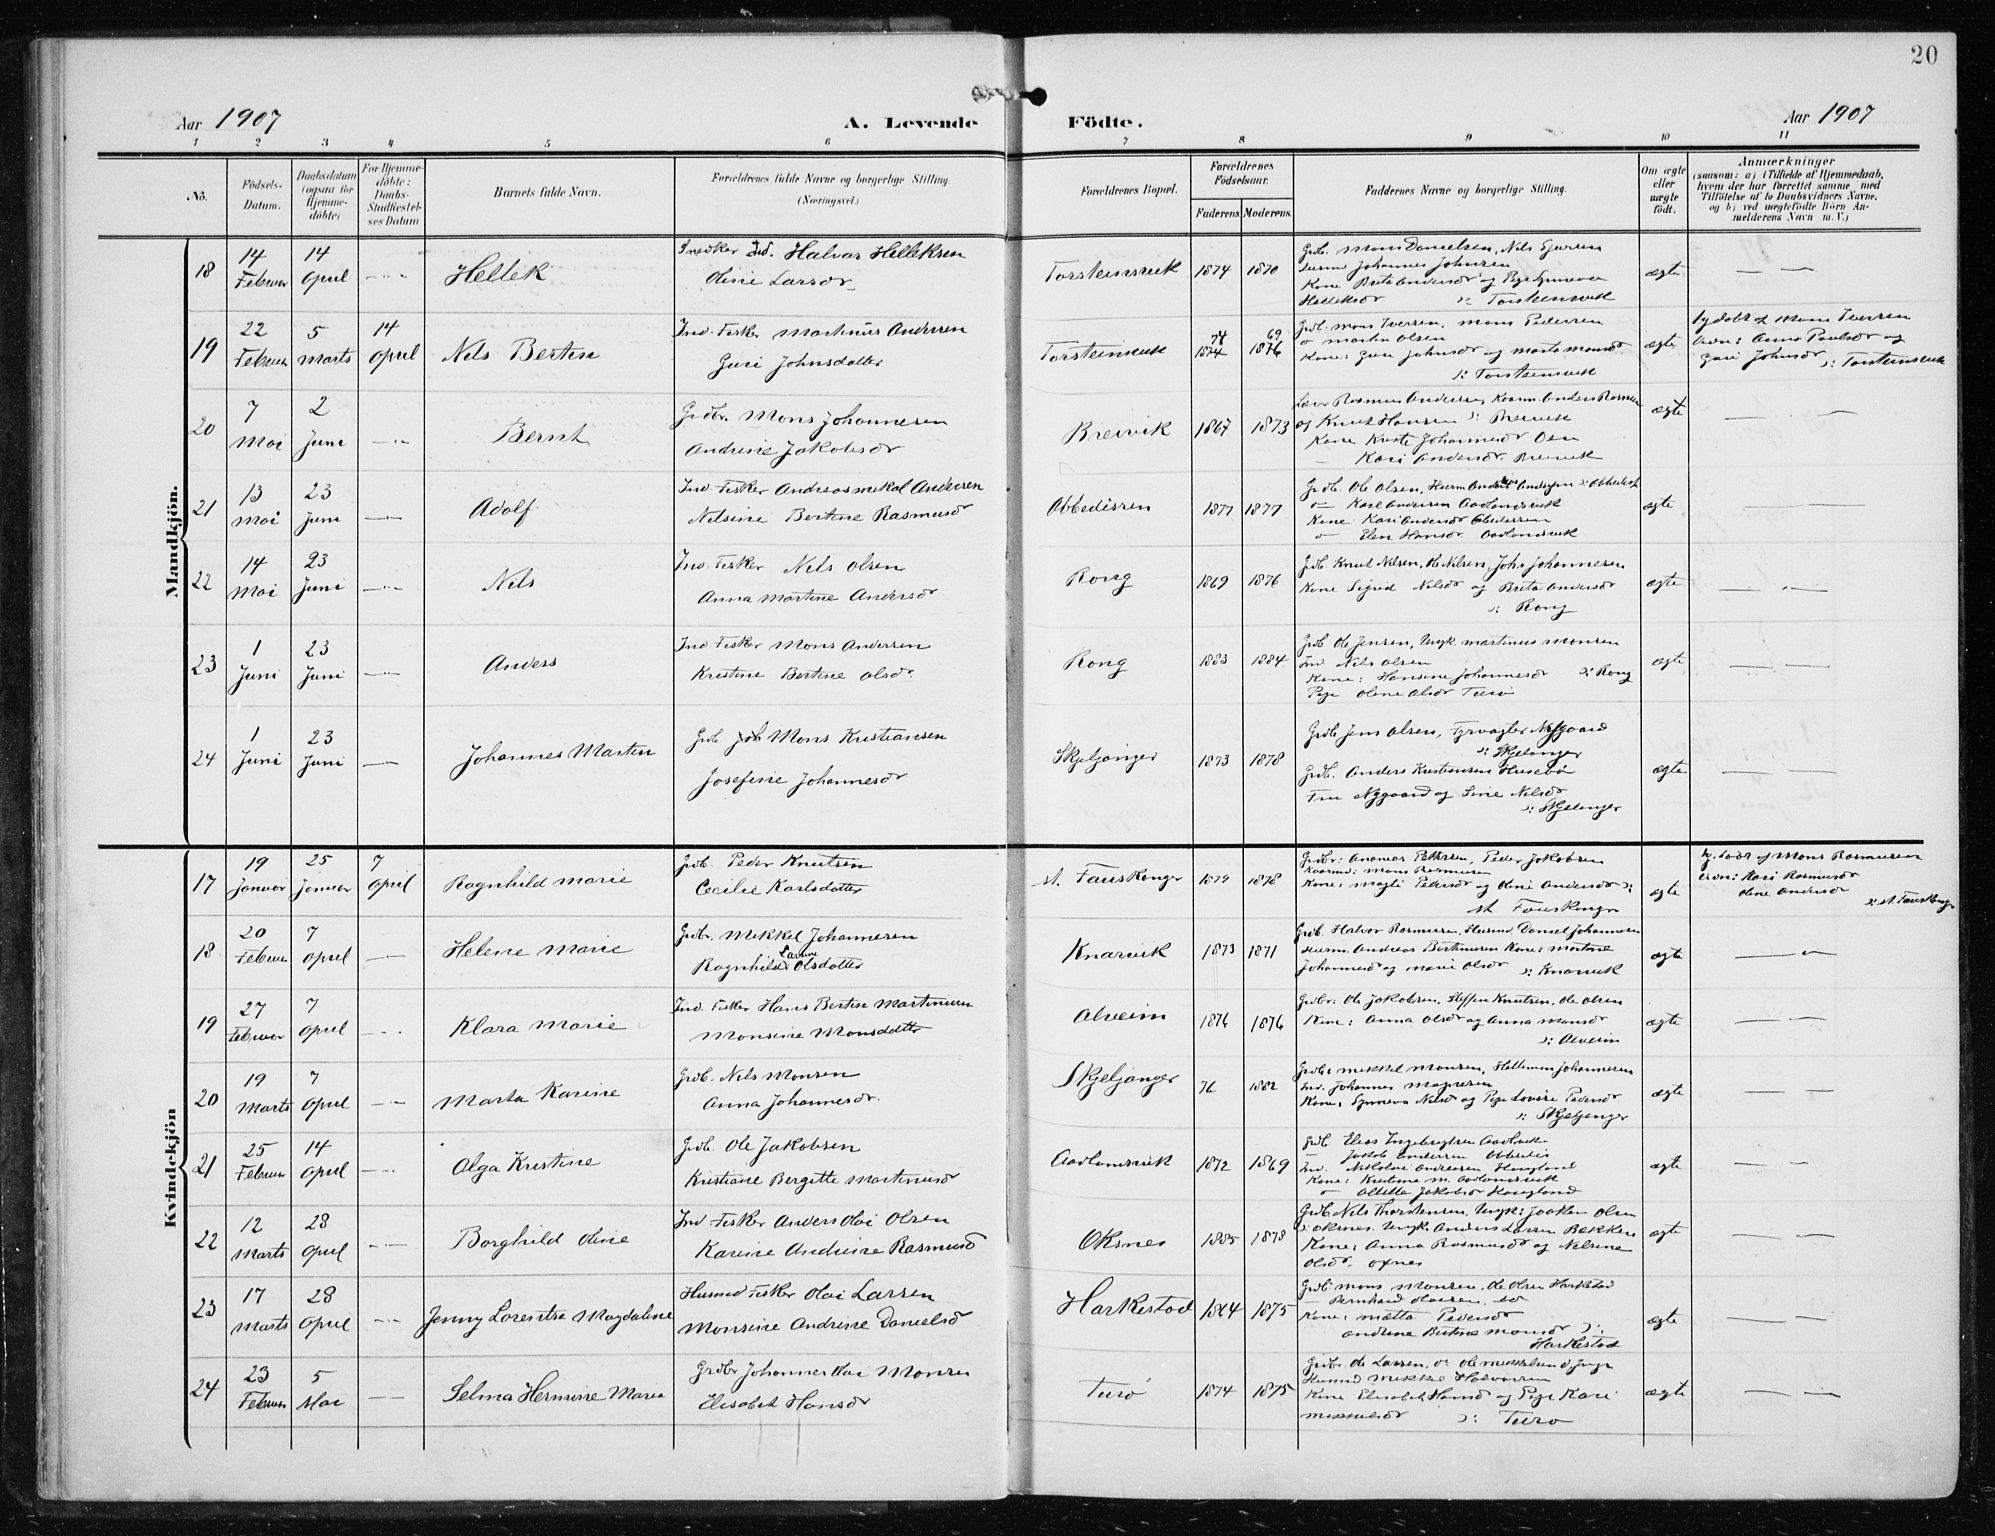 20
Aar 1907
A. Levende Födte.
Aar 1907
1 2 3 4 5 6 7 8 9 10 11
No.
Födsels-
Datum.
Daabsdatum
(ogsaa for
Hjemme-
döbte)
For Hjemme-
döbte:
Daabs-
Stadfæstel-
ses Datum
Barnets fulde Navn.
Forældrenes fulde Navne og borgerlige Stilling.
(Næringsvei.)
Forældrenes Bopæl.
Forældrenes
Födselsaar.
Faderens Moderens
Faddernes Navne og borgerlige Stilling.
Om ægte
eller
uægte
födt.
Anmærkninger
(saasom: a) i Tilfælde af Hjemmedaab,
hvem der har forrettet samme med
Tilföielse af to Daabsvidners Navne,
og b) ved uægtefödte Börn An-
melderens Navn m. V.)
Mandkjön.
18 14 Februar 14 April Hellek
Ind. Halvar Helleksen
Oline Larsdr
Torsteinsvik 1874 1870
Grdb. Mons Danielsen, Nils
Johannes Johnsen
Kone Brita Andersdr og Pige Synneva
Helleksdr ɔ: Torsteinsvik
ægte
19 22 Februar 5 Marts 14 April Nils Bertin
Ind. Fisker Martinus Andersen
Guri Johnsdatter
Torsteinsvik 74 1874 69 1876
Grdb. Mons Iversen, Mons Pedersen
o Martin Olsen
Kone: Guri Johnsdr og Marta Monsdr
ɔ: Torsteinsvik
ægte
Hjdøbt af Mons Iversen
Anna Paulsdr og
Guri Johnsdr ɔ: Torsteinsvik
20 7 Mai 2 Juni Bernt
Grdbr. Mons Johannesen
Andrine Jakobsdr
Breivik 1867 1873
Rasmus Andersen, Anders Rasmusen
og Knut Hansen ɔ: Breivik
Kone Johannesdr Oen
— Kari Andersdr. Breivik
ægte
21 13 Mai 23 Juni Adolf
Ind. Fisker Andreas Mikal Andersen
Nilsine Bertine Rasmusd
Obbedissen 1877 1877
Grdb. Ole Olsen,
— Karl Andersen Aadlandsvik
Kone: Kari Andersdr Obbedissen
— Elen Hansdr. Aadlandsvik
ægte
22 14 Mai 23 Juni Nils
Ind. Fisker Nils Olsen
Anna Martine Andersdr
Rong 1869 1876
Grdb. Knut Nilsen, Ole Nilsen, John Johannesen
Kone Sigrid Nilsdr og Brita Andersdr
ɔ: Rong
ægte
23 1 Juni 23 Juni Anders
Ind. Fisker Mons Andersen
Kristine Bertine Olsdr.
Rong 1883 1884
Grdb Ole Jensen, Ungk. Martinus Monsen
Ind Nils Olsen
Kone: Hansine Johannesdr ɔ: Rong
Pige Oline Olsdr Turø
ægte
24 1 Juni 23 Juni Johannes Martin
Grdb. Mons Kristiansen
Josefine Johannesdr
Skjeljanger 1873 1878
Grdb Jens Olsen, Fyrvagter Nygaard
ɔ: Skjelanger
Grdb. Anders Kristiansen Husebø
Fru Nygaard og Sine Nilsdr
ɔ: Skjelanger
ægte
Kvindekjön
17 19 Januar 25 Januar 7 April Ragnhild Marie
Grdb. Peder Knutsen
Cecilie Karlsdatter
st. Fauskanger 1879 1878
Grdbr: Ananias Pettersen, Peder Jakobsen
Mons Rasmusen
Kone: Magli Pedersdr og Oline Andersdr ɔ:
st Fauskanger
ægte
Hj. døbt af Mons Rasmusen
Kari Rasmusdr
Oline Andersdr
ɔ: st. Fauskanger
18 20 Februar 7 April Helene Marie
Grdbr. Mikkel Johannesen
Ragnhild Larsine Olsdatter
Knarvik 1873 1871
Grdb. Halvor Rasmusen, Husmd Daniel Johannesen
Husm. Andreas Bertinusen Kone: Martine
Johannesdr og Marie Olsdr ɔ: Knarvik
ægte
19 27 Februar 7 April Klara Marie
Ind. Fisker Hans Bertin Martinusen
Monsine Monsdatter
Alveim 1876 1876
Grdbr: Ole Jakobsen, Steffen Knutsen, Ole Olsen
Kone: Anna Olsdr og Anna Monsdr
ɔ: Alveim
ægte
20 19 Marts 7 April Marta Karine
Grdb. Nils Monsen
Anna Johannesdr.
Skjeljanger 76 1882
Grdb: Mikkel Monsen, Johannesen
Ind. Johannes Magnesen
Kone: Synneva Nilsdr og Pige Lovise Pedersdr
ɔ: Skjeljanger
ægte
21 25 Februar 14 April Olga Kristine
Grdb. Ole Jakobsen
Kristiane Bergitte Martinusd
Aadlandsvik 1872 1869
Grdb. Elias Ingebrigtsen Aadlvik
— Jakob Andersen Obbedis
Ind. Nikolai Andreasen Haugland
Kone: Kristine M. Aadlandsvik
— Oletta Jakobsdr Haugland
ægte
22 12 Marts 28 April Borghild Oline
Ind Fisker Anders Olai Olsen
Karine Andrine Rasmusd
Oksnes 1885 1878
Grdb Nils Thorstensen, Ungk: Joakim Olsen
ɔ: Oksnes. Ungk. Anders Larsen Bakken
Kone: Anna Rasmusdr og Nilsine
Olsdr. Oxnes
ægte
23 17 Marts 28 April Jenny Lorentse Magdalene
Husmd Fisker Olai Larsen
Monsine Andrine Danielsd
Harkestad 1864 1875
Grdb: Mons Monsen, Ole Olsen Harkestad
— Bernhard
Kone: Mætta Pedersdr
Andrine Bertine Monsdr ɔ:
Harkestad
ægte
24 23 Februar 5 Mai Selma Hermine Marie
Grdbr Johannes Olai Monsen
Elisabet Hansdr
Turø 1874 1875
Grdbr. Ole Larsen,
Husmd Mikkel Halvorsen
Kone Elisabet Hansd og Pige Kari
Mikkelsdr ɔ: Turø
ægte